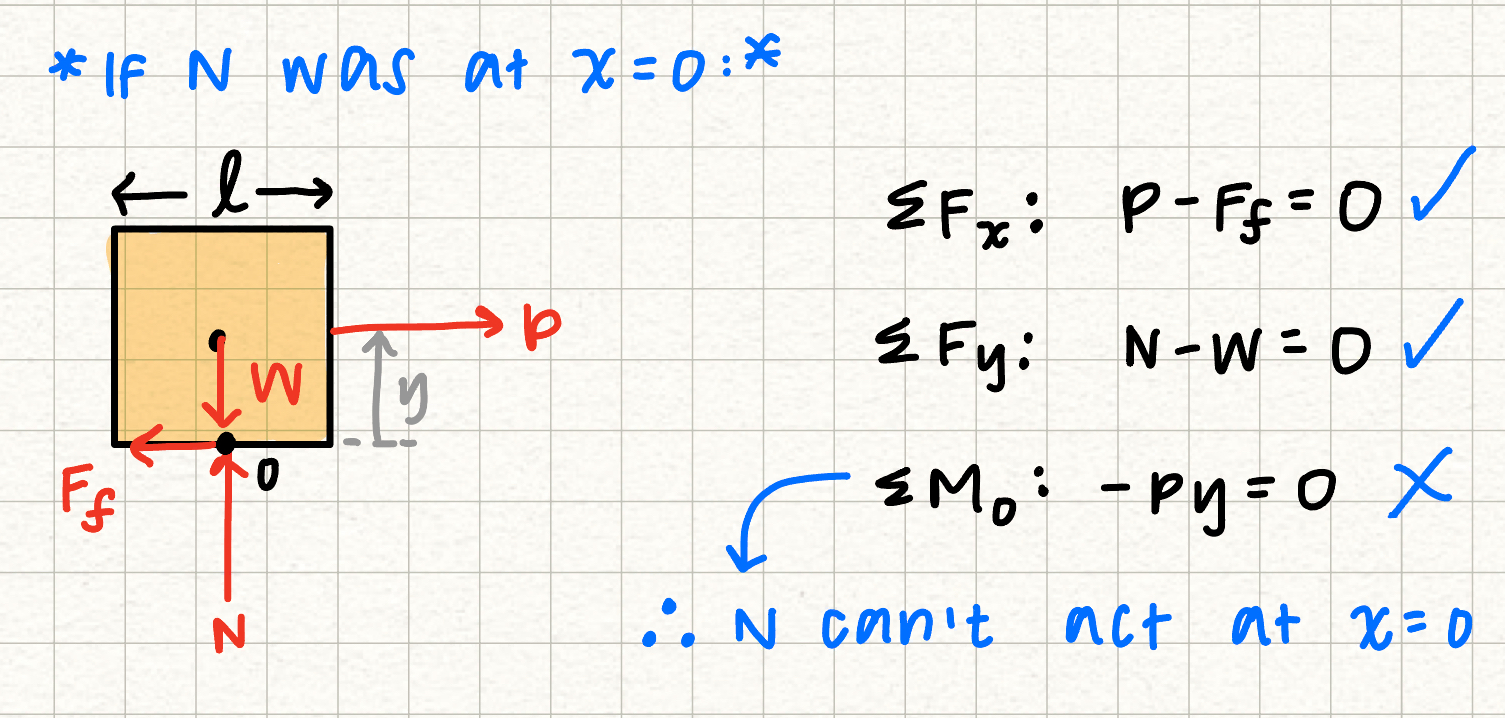 *If N was at x=0:*
l
P
W
y
F_f
O
N
ΣF_x: P-F_f=0 ✓
ΣF_y: N-W=0 ✓
ΣM_O: -Py=0 ✗
∴ N can't act at x=0